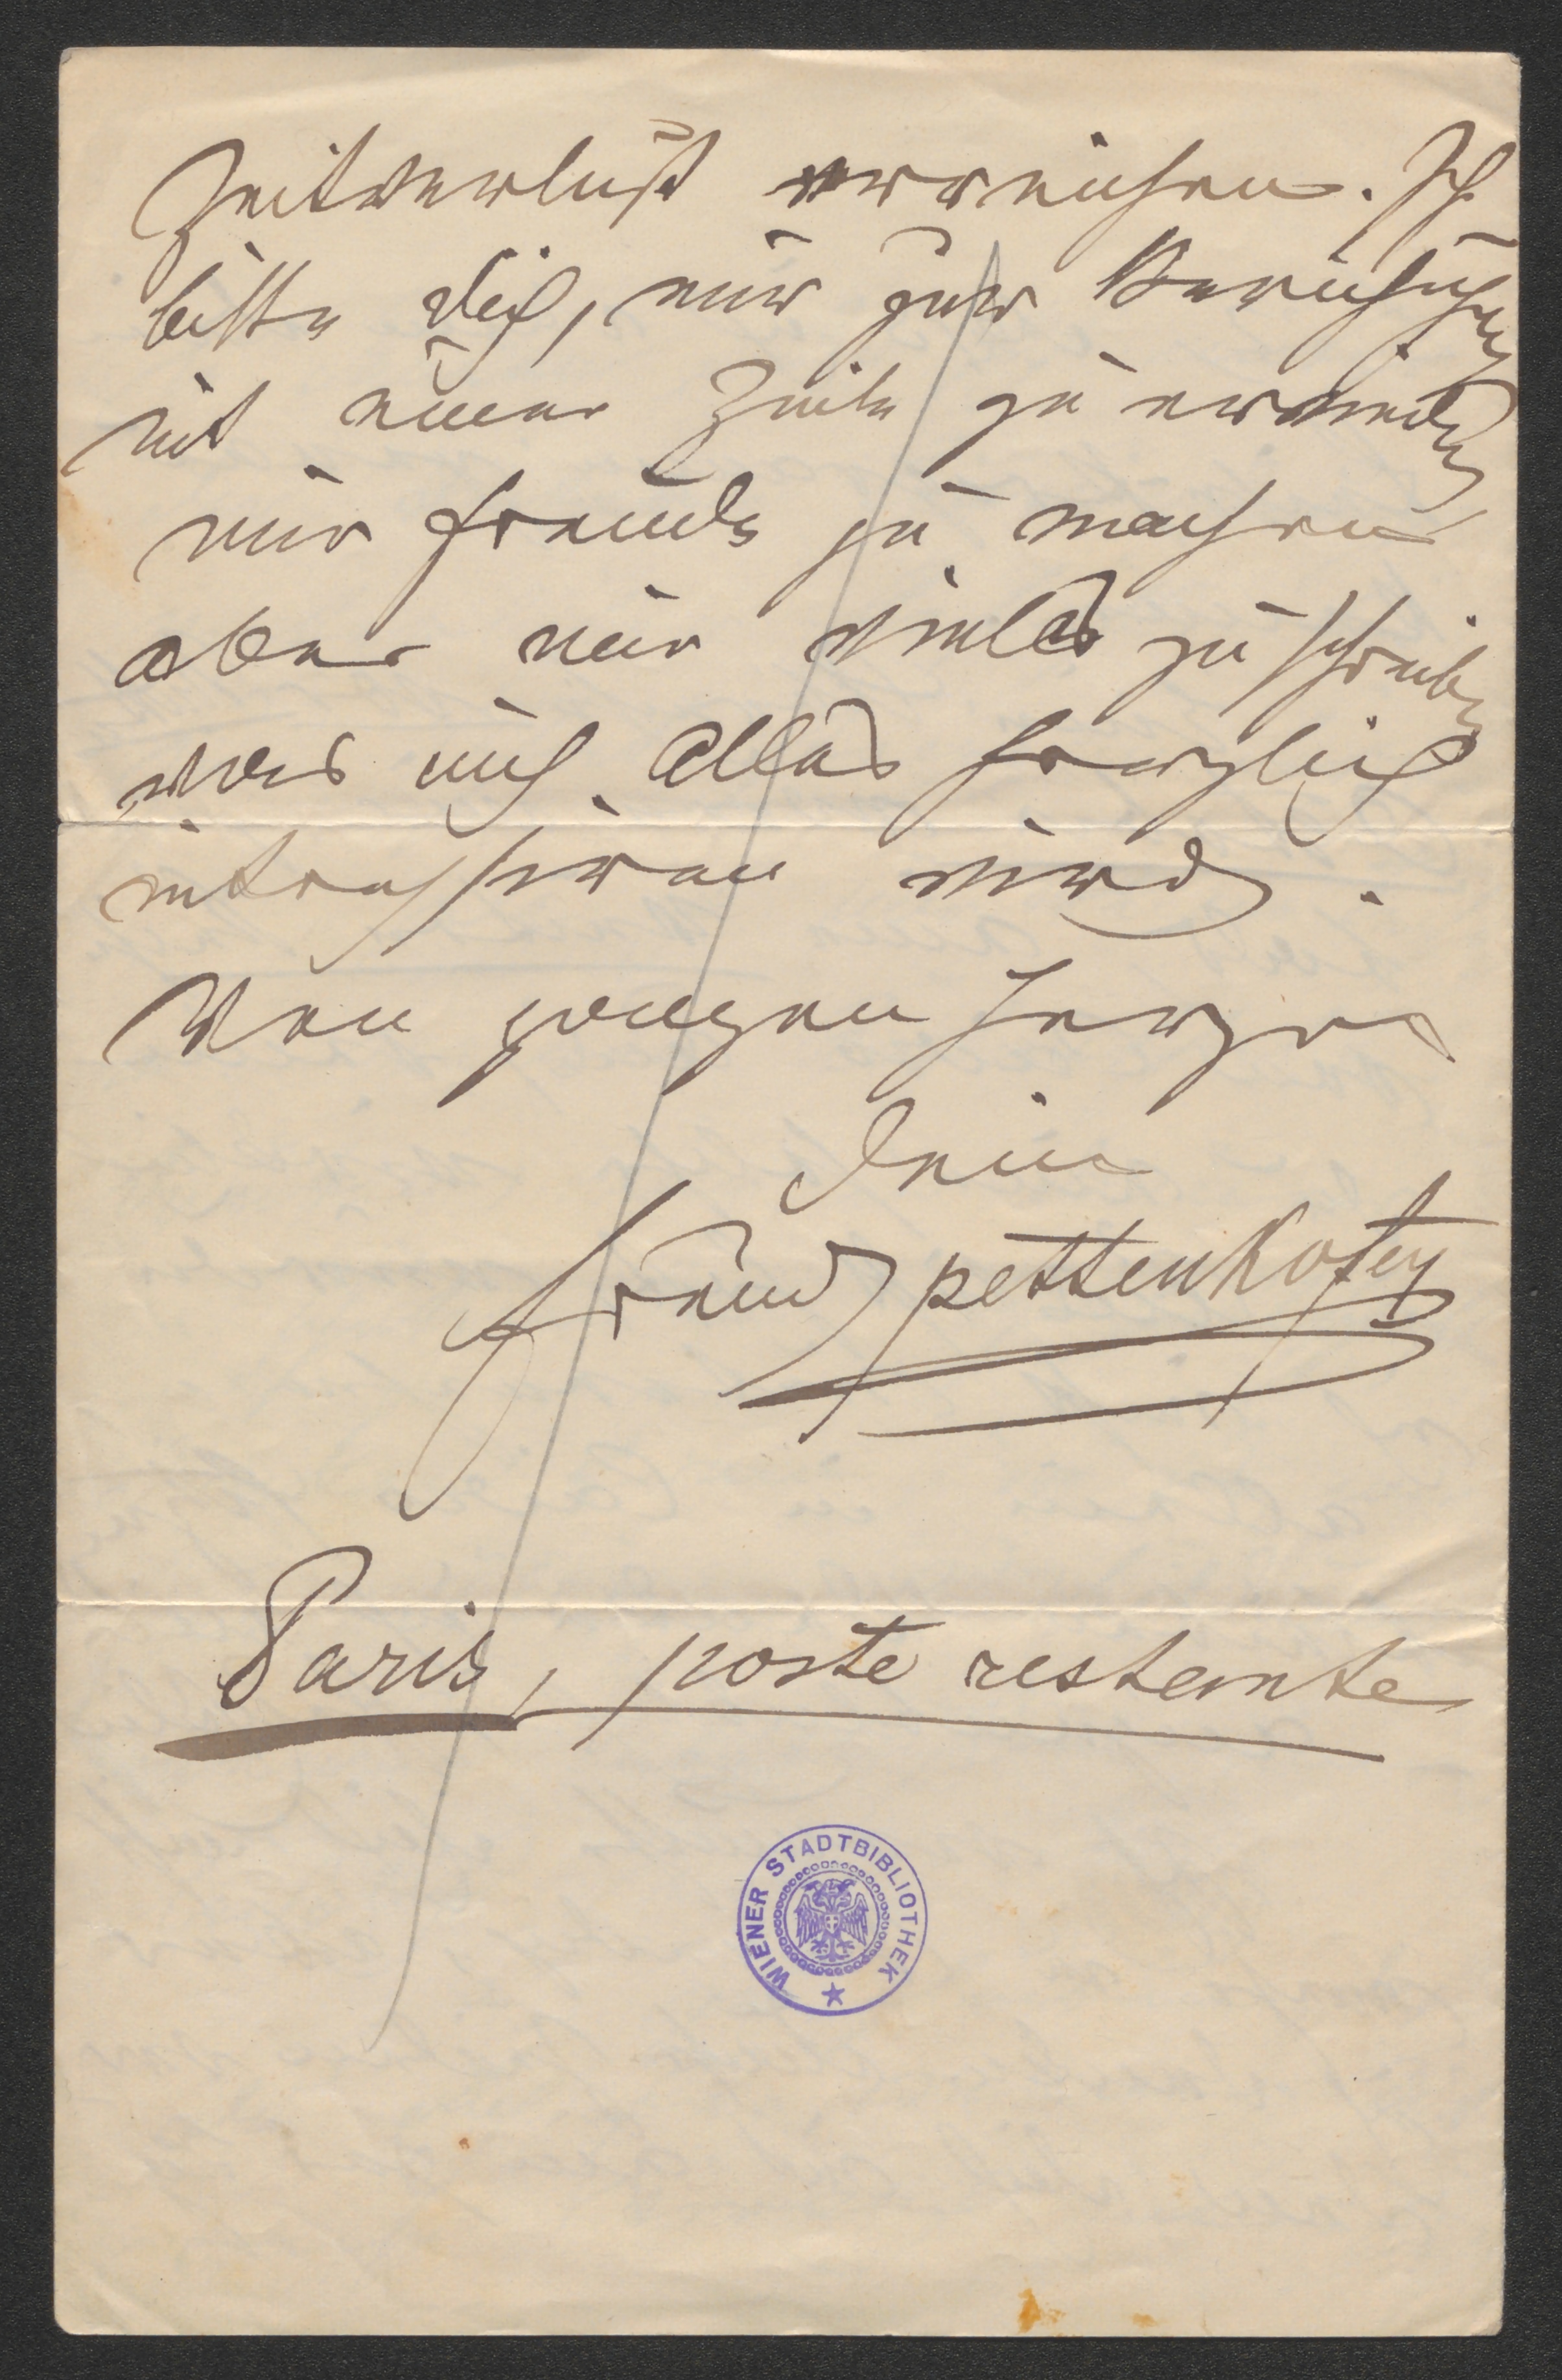 Zeitverlust erreichen. Ich
bitte Dich, mir zur Beruhigung
mit einer Zeile zu erwiedern
mir Freude zu machen
aber mir vieles zu schreiben
was mich alles herzlich
intressiren wird.
Von ganzen Herzen
Dein
Freund Pettenkofen
Paris, poste restante
WIENER STADTBIBLIOTHEK